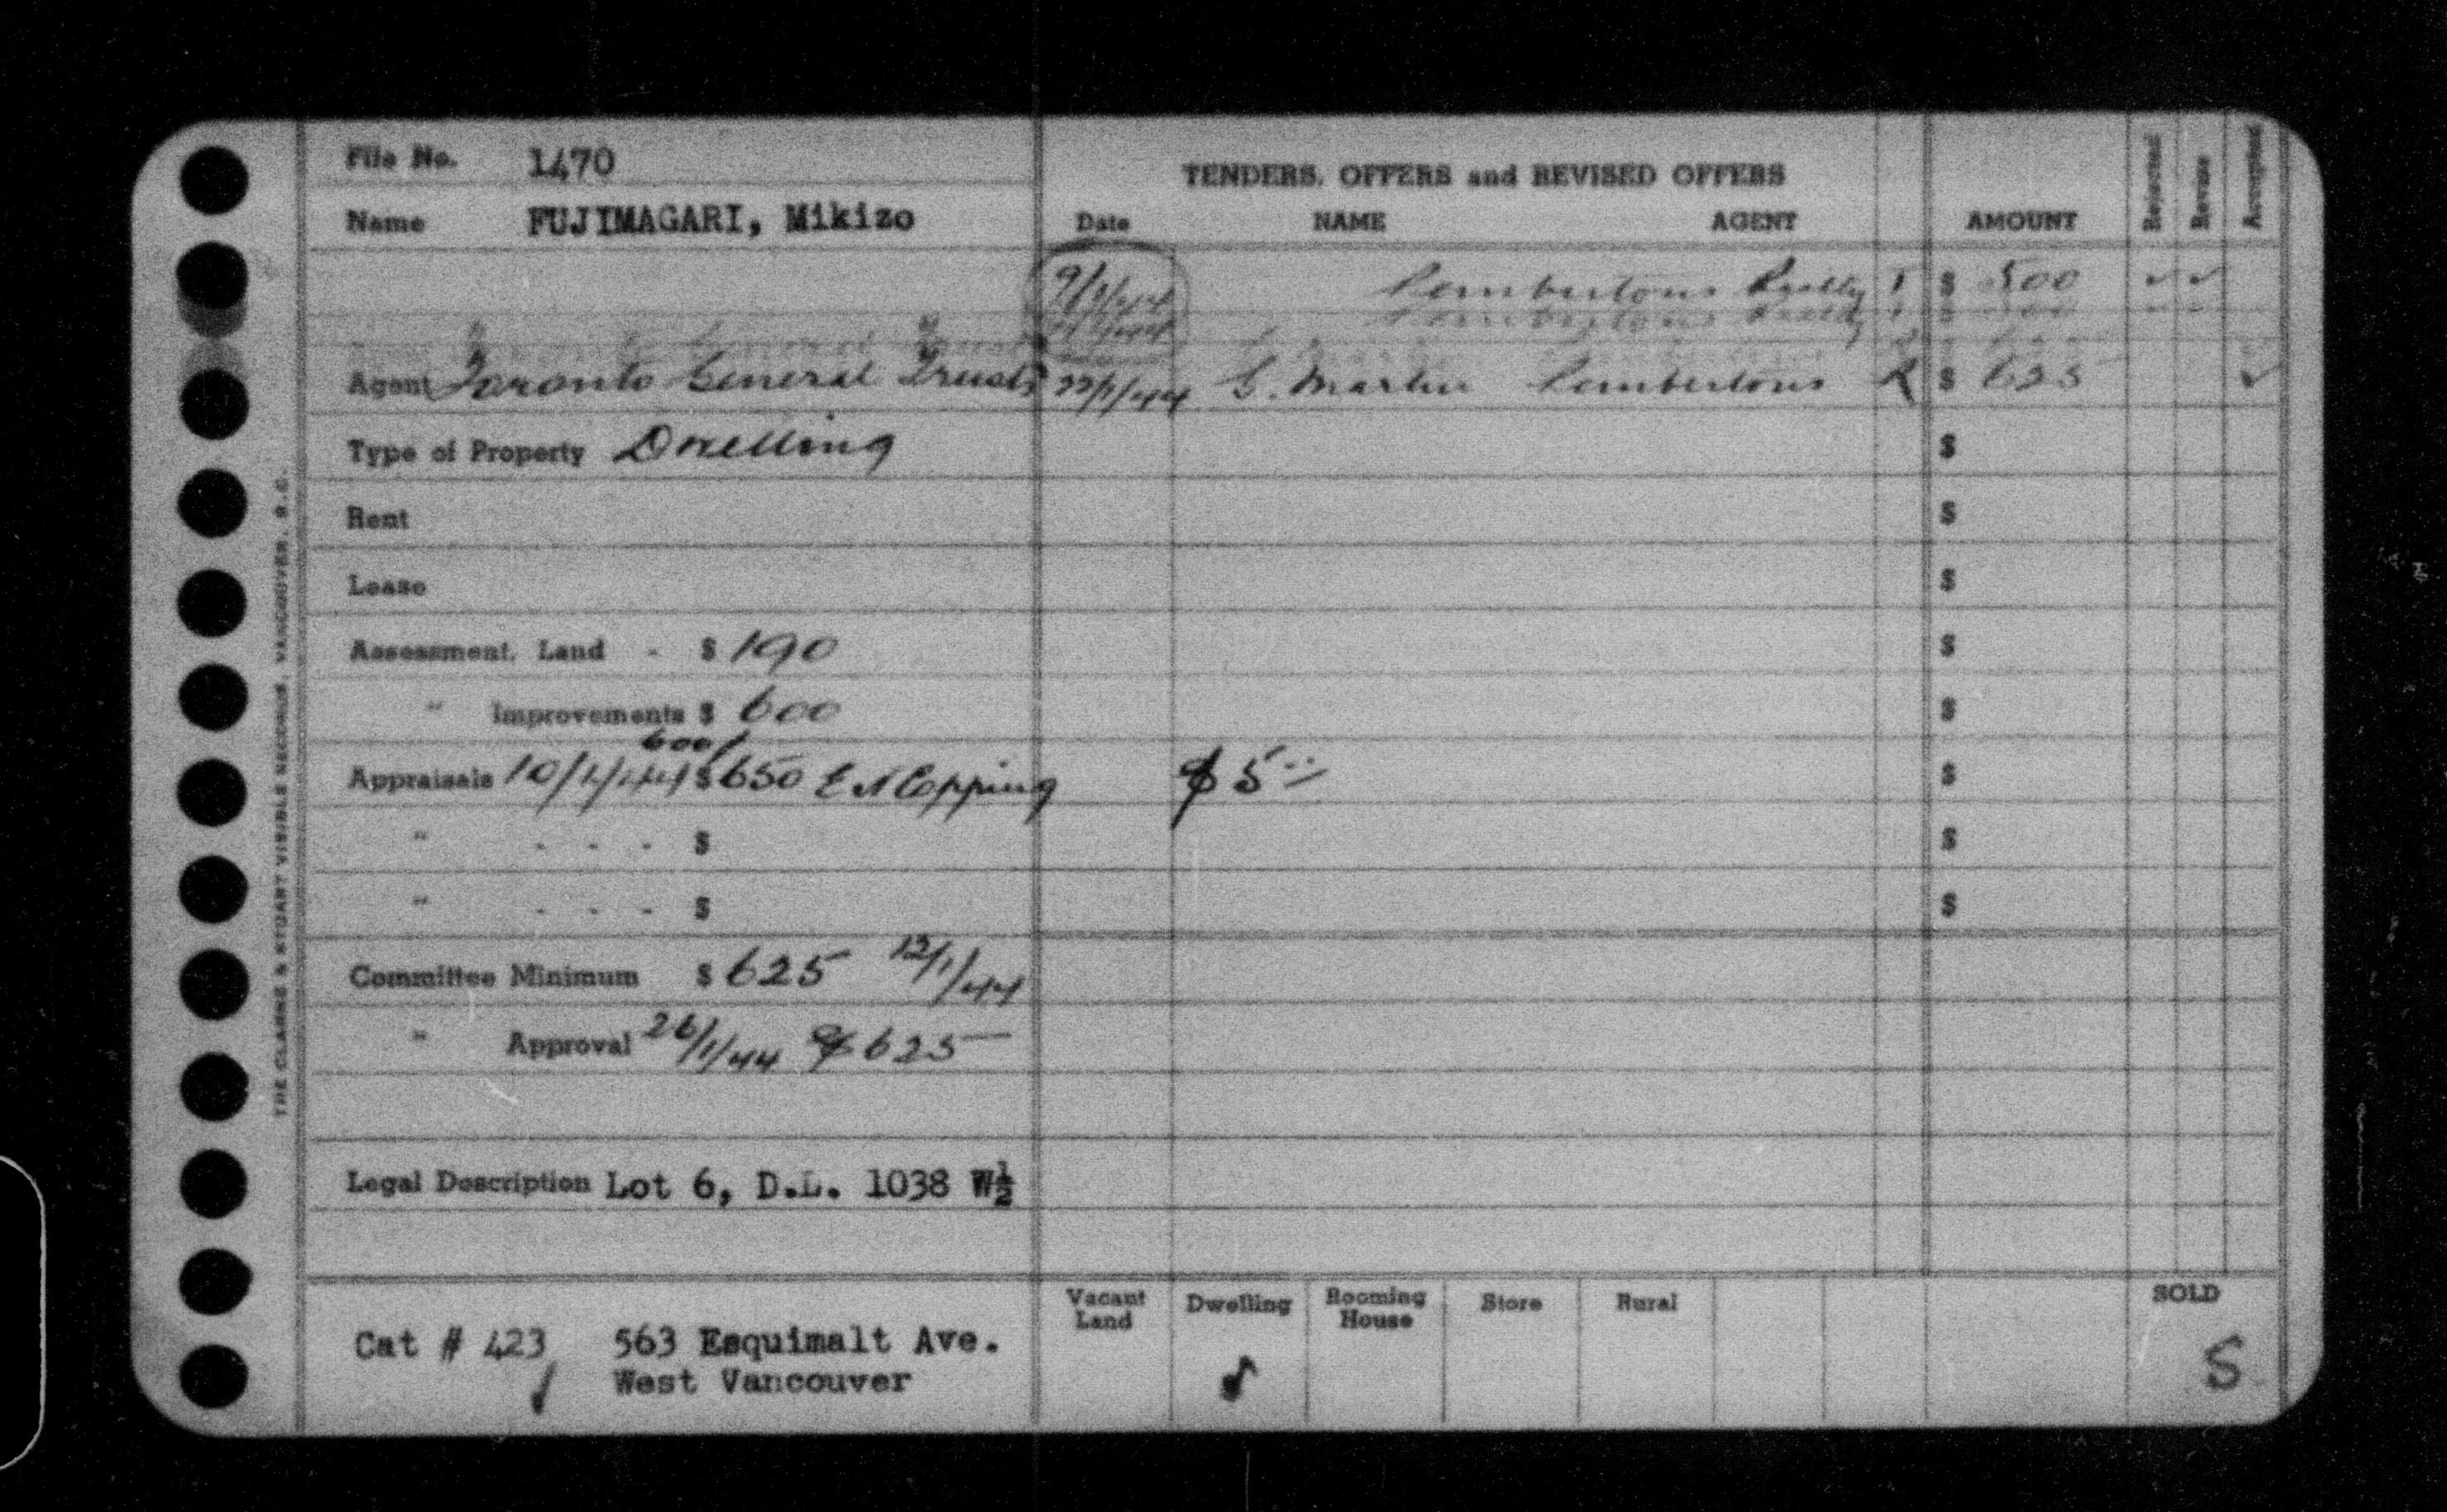 File No. 1470
Name FUJIMAGARI, Mikizo
TENDERS, OFFERS and REVISED OFFERS
Date NAME AGENT AMOUNT Rejected Revise Accepted
Pembertons Realty T $ 500 ✓ ✓
Agent Toronto General Trusts 22/1/44 G. Martin Pembertons R $ 625 ✓
Type of Property Dwelling $
Rent $
Lease $
Assessment, Land - $ 190 $
" Improvements $ 600 $
600/
Appraisals 10/1/44 $ 650 E N Copping $5 $
" - - - $ $
" - - - $ $
Committee Minimum $ 625 12/1/44
" Approval 26/1/44 $625
Legal Description Lot 6, D.L. 1038 W½
Vacant Land Dwelling Rooming House Store Rural SOLD
Cat # 423 563 Esquimalt Ave.
✓ West Vancouver ✓ S
THE CLARKE & STUART VISIBLE RECORDS, VANCOUVER, B.C.